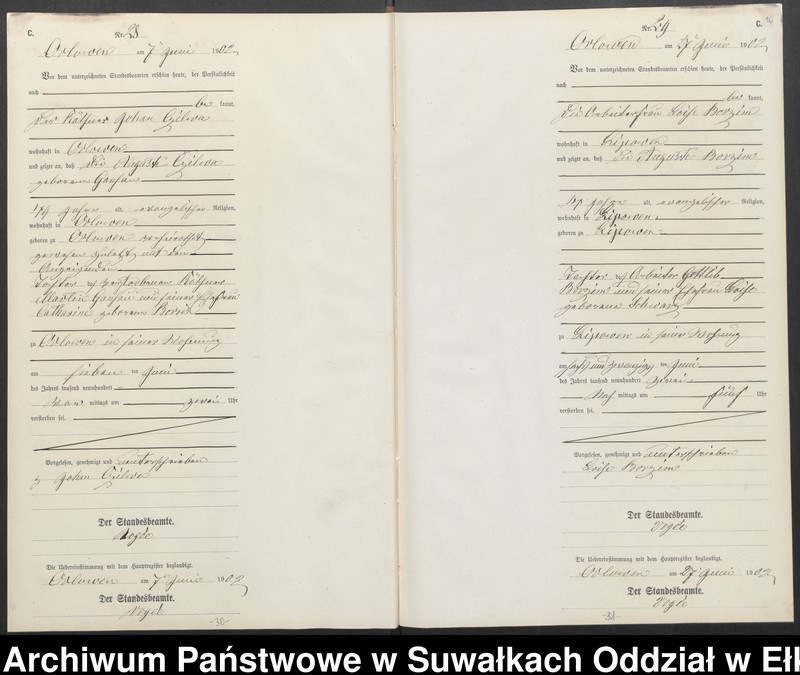 C.
Nr. 28
Orlowen am 7ten Juni 1902
Vor dem unterzeichneten Standesbeamten erschien heute, der Persönlichkeit
nach
be kannt,
der Käthner Johan Czilwa
wohnhaft in Orlowen
und zeigte an, daß die Auguste Czilwa
geborene
Jahre alt, evangelischer Religion,
wohnhaft in Orlowen
geboren zu Orlowen verheirathet
gewesen zuletzt mit dem
Anzeigenden
Tochter des verstorbenen Käthner
Martin und seiner Ehefrau
Catharine geborene
zu Orlowen in seiner Wohnung
am sieben ten Juni
des Jahres tausend neunhundert
Vor mittags um zwei Uhr
verstorben sei.
Vorgelesen, genehmigt und unterschrieben
Johan Czilwa
Der Standesbeamte.
Die Uebereinstimmung mit dem Hauptregister beglaubigt.
Orlowen am 7ten Juni 1902
Der Standesbeamte.
-30-
C.
Nr. 29
Orlowen am 27ten Juni 1902
Vor dem unterzeichneten Standesbeamten erschien heute, der Persönlichkeit
nach
be kannt,
die Arbeiterfrau Loise Borzim
wohnhaft in Lipowen
und zeigte an, daß die Auguste Borzim
Jahre alt, evangelischer Religion,
wohnhaft in Lipowen
geboren zu Lipowen
Tochter des Arbeiter Gottlieb
Borzim und seiner Ehefrau Loise
geborene Schwarz
zu Lipowen in seiner Wohnung
am sechs und zwanzigsten Juni
des Jahres tausend neunhundert zwei
Nach mittags um fünf Uhr
verstorben sei.
Vorgelesen, genehmigt und unterschrieben
Loise Borzim
Der Standesbeamte.
Die Uebereinstimmung mit dem Hauptregister beglaubigt.
Orlowen am 27ten Juni 1902
Der Standesbeamte.
-31-
Archiwum Państwowe w Suwałkach Oddział w Ełk